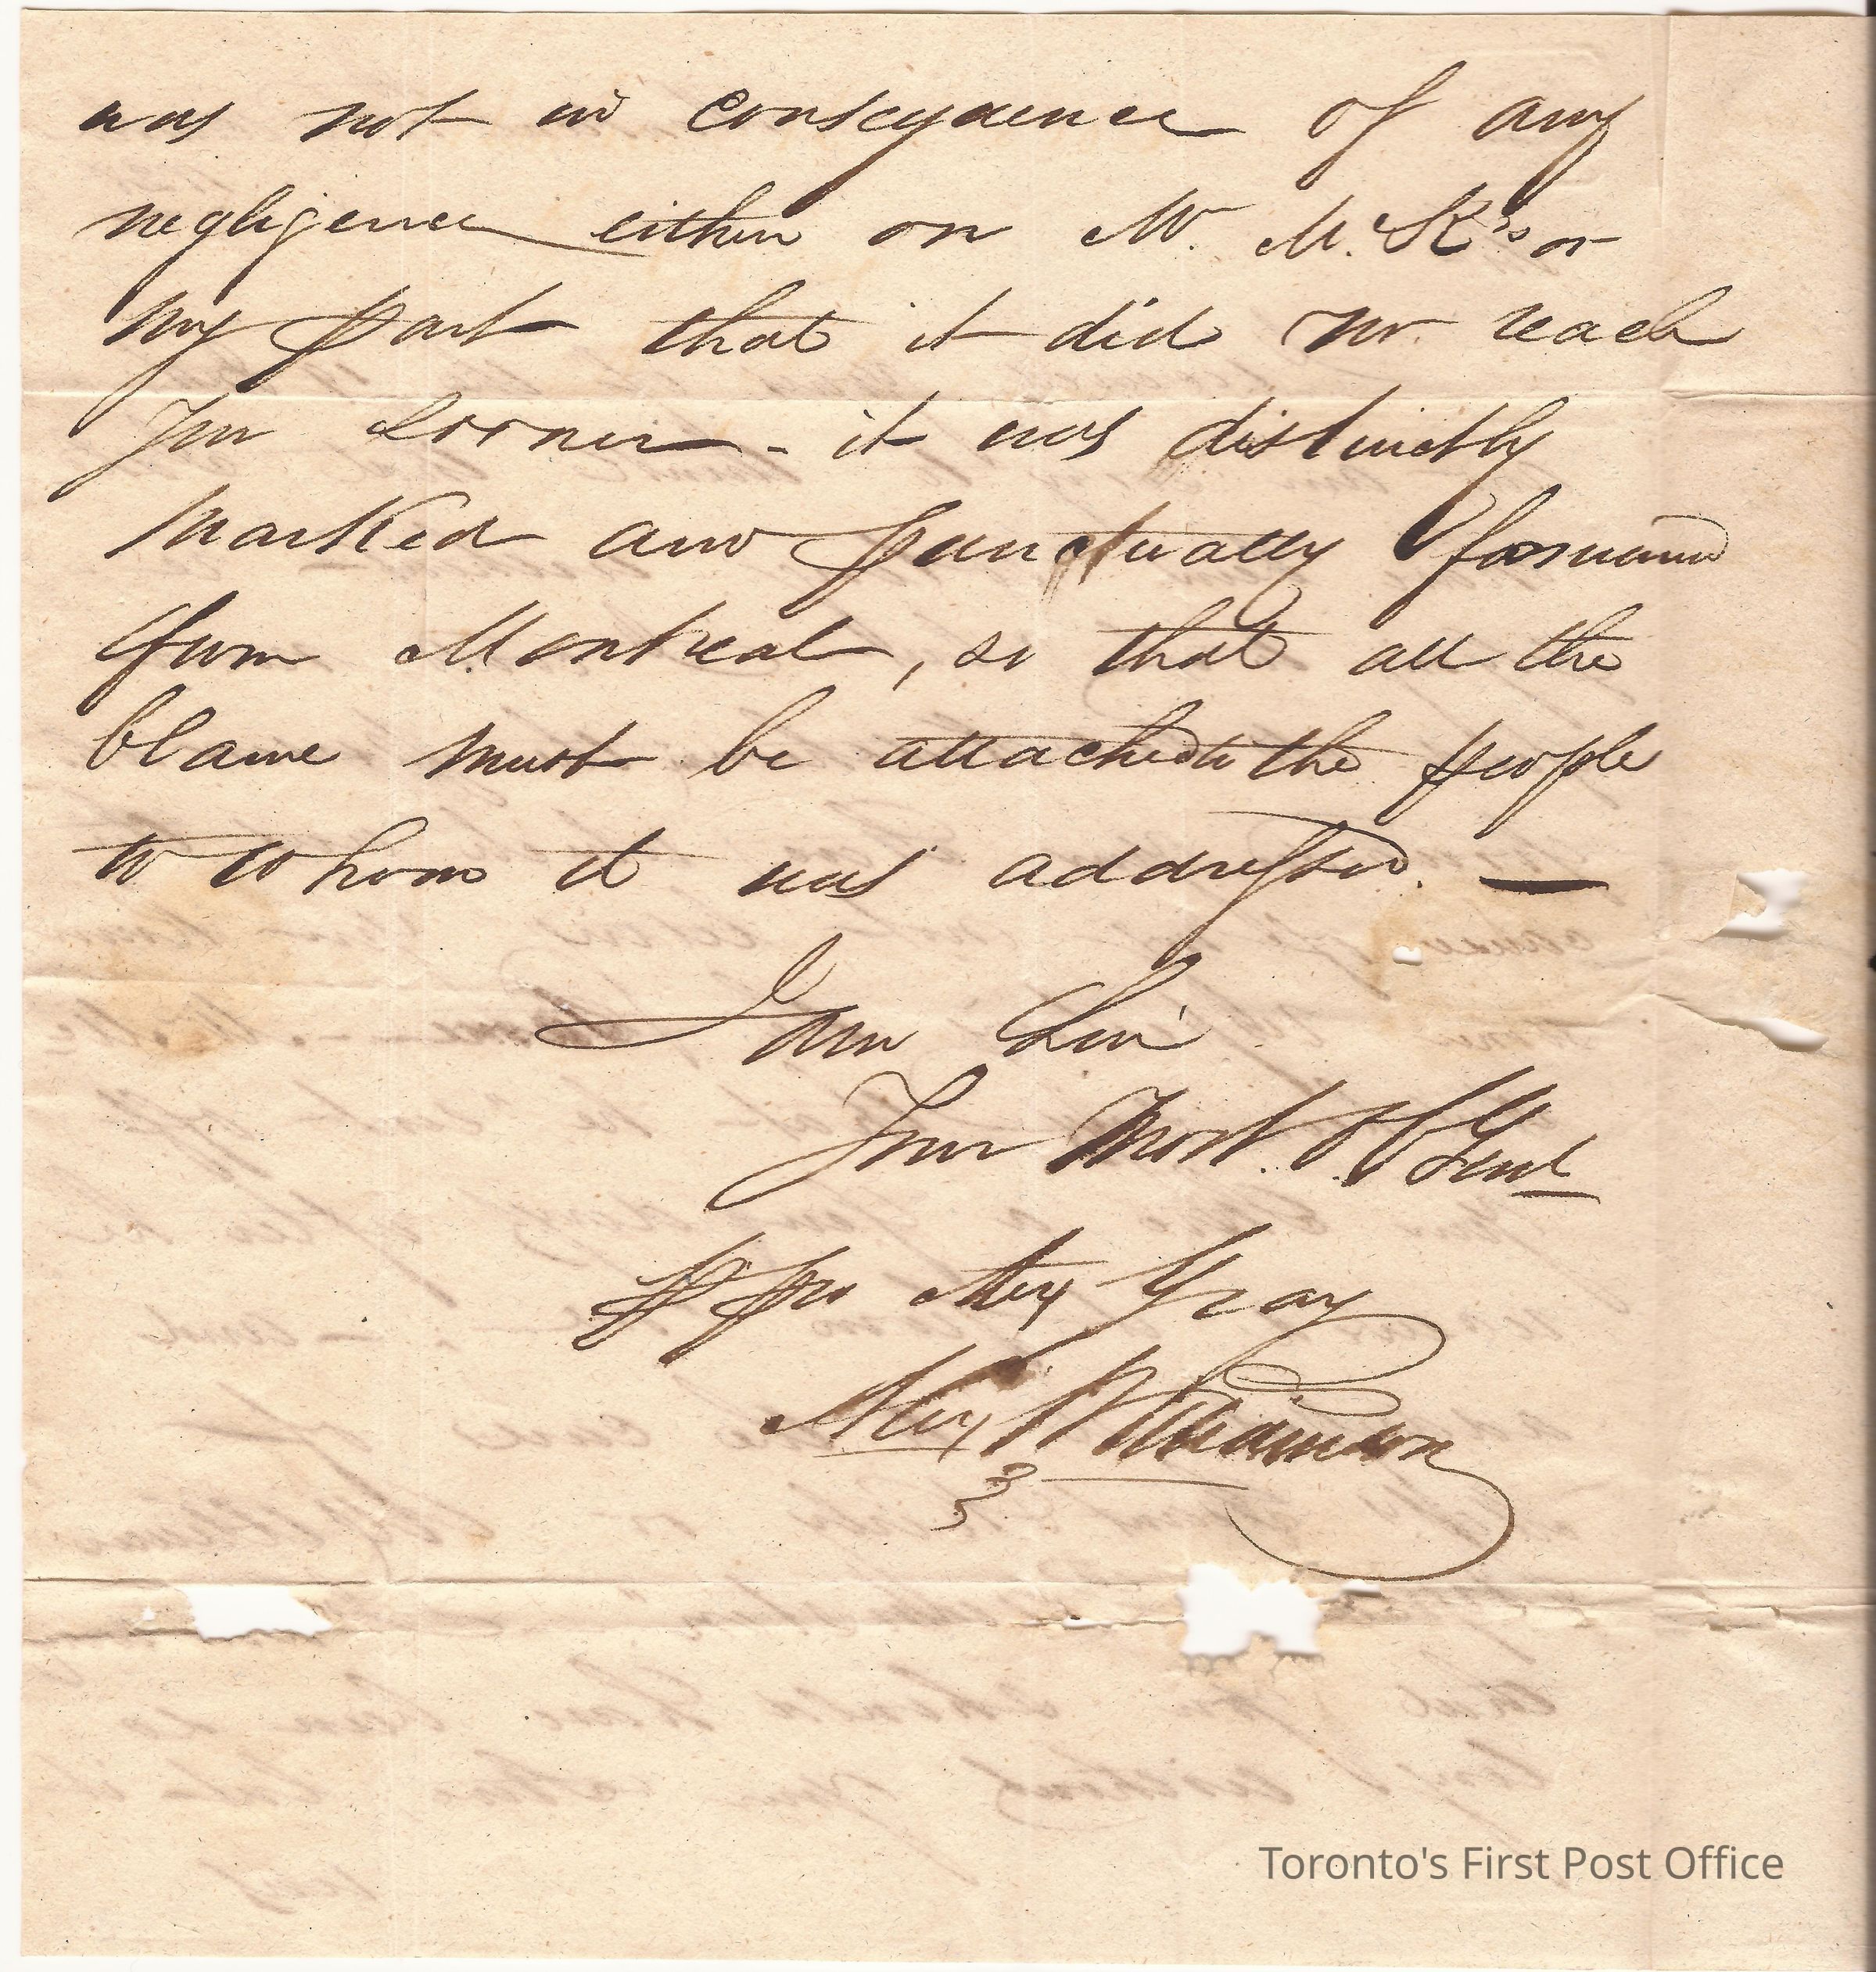 was not in consequence of any
negligence either on Mr. McK's or
my part that it did no reach
you sooner - it was distinctly
marked and punctually forward
from Montreal, so that all the
blame must be attached to the people
to whom it was addressed. —
I am Sir
Your Most. Ob Servt
pro Alex Gray
Alex Williamson
Toronto's First Post Office